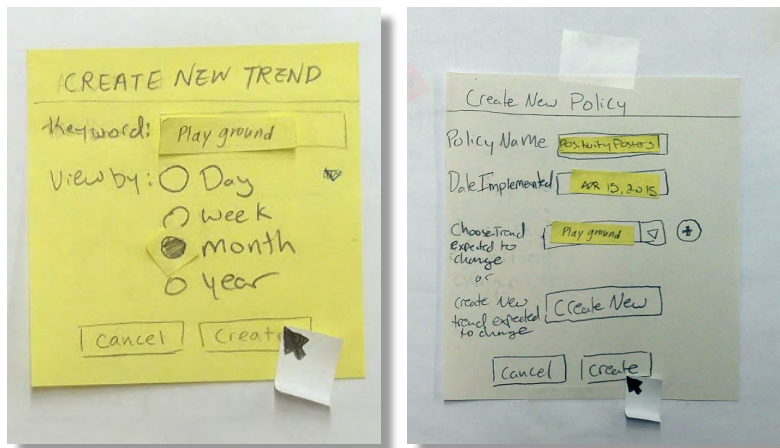 CREATE NEW TREND
Keyword: Play ground
View by: Day
week
month
year
Cancel Create
Create New Policy
Policy Name Positivity Posters
Date Implemented APR 15, 2015
Choose Trend
Expected to
change
Play ground
or
Create New
trend expected
to change
Create New
Cancel Create